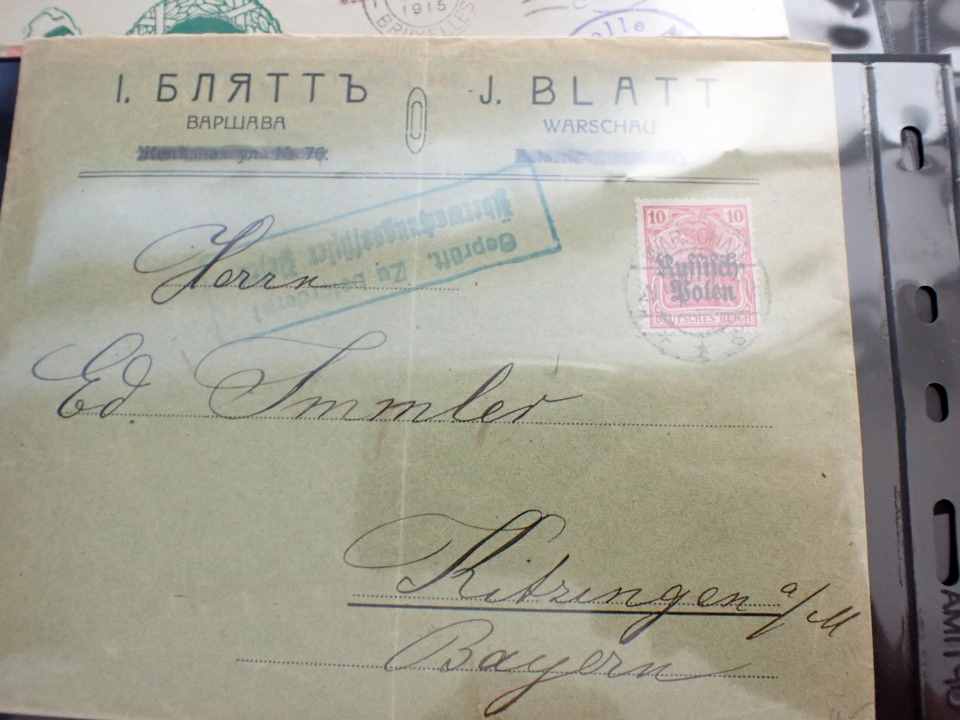 1915
BRUXELLES
I. БЛЯТТЪ
ВАРШАВА
J. BLATT
WARSCHAU
Geprüft. Zu befördern!
10 10
Russisch-
Polen
DEUTSCHES REICH
Herrn
Ed Immler
Kitzingen a/M
Bayern